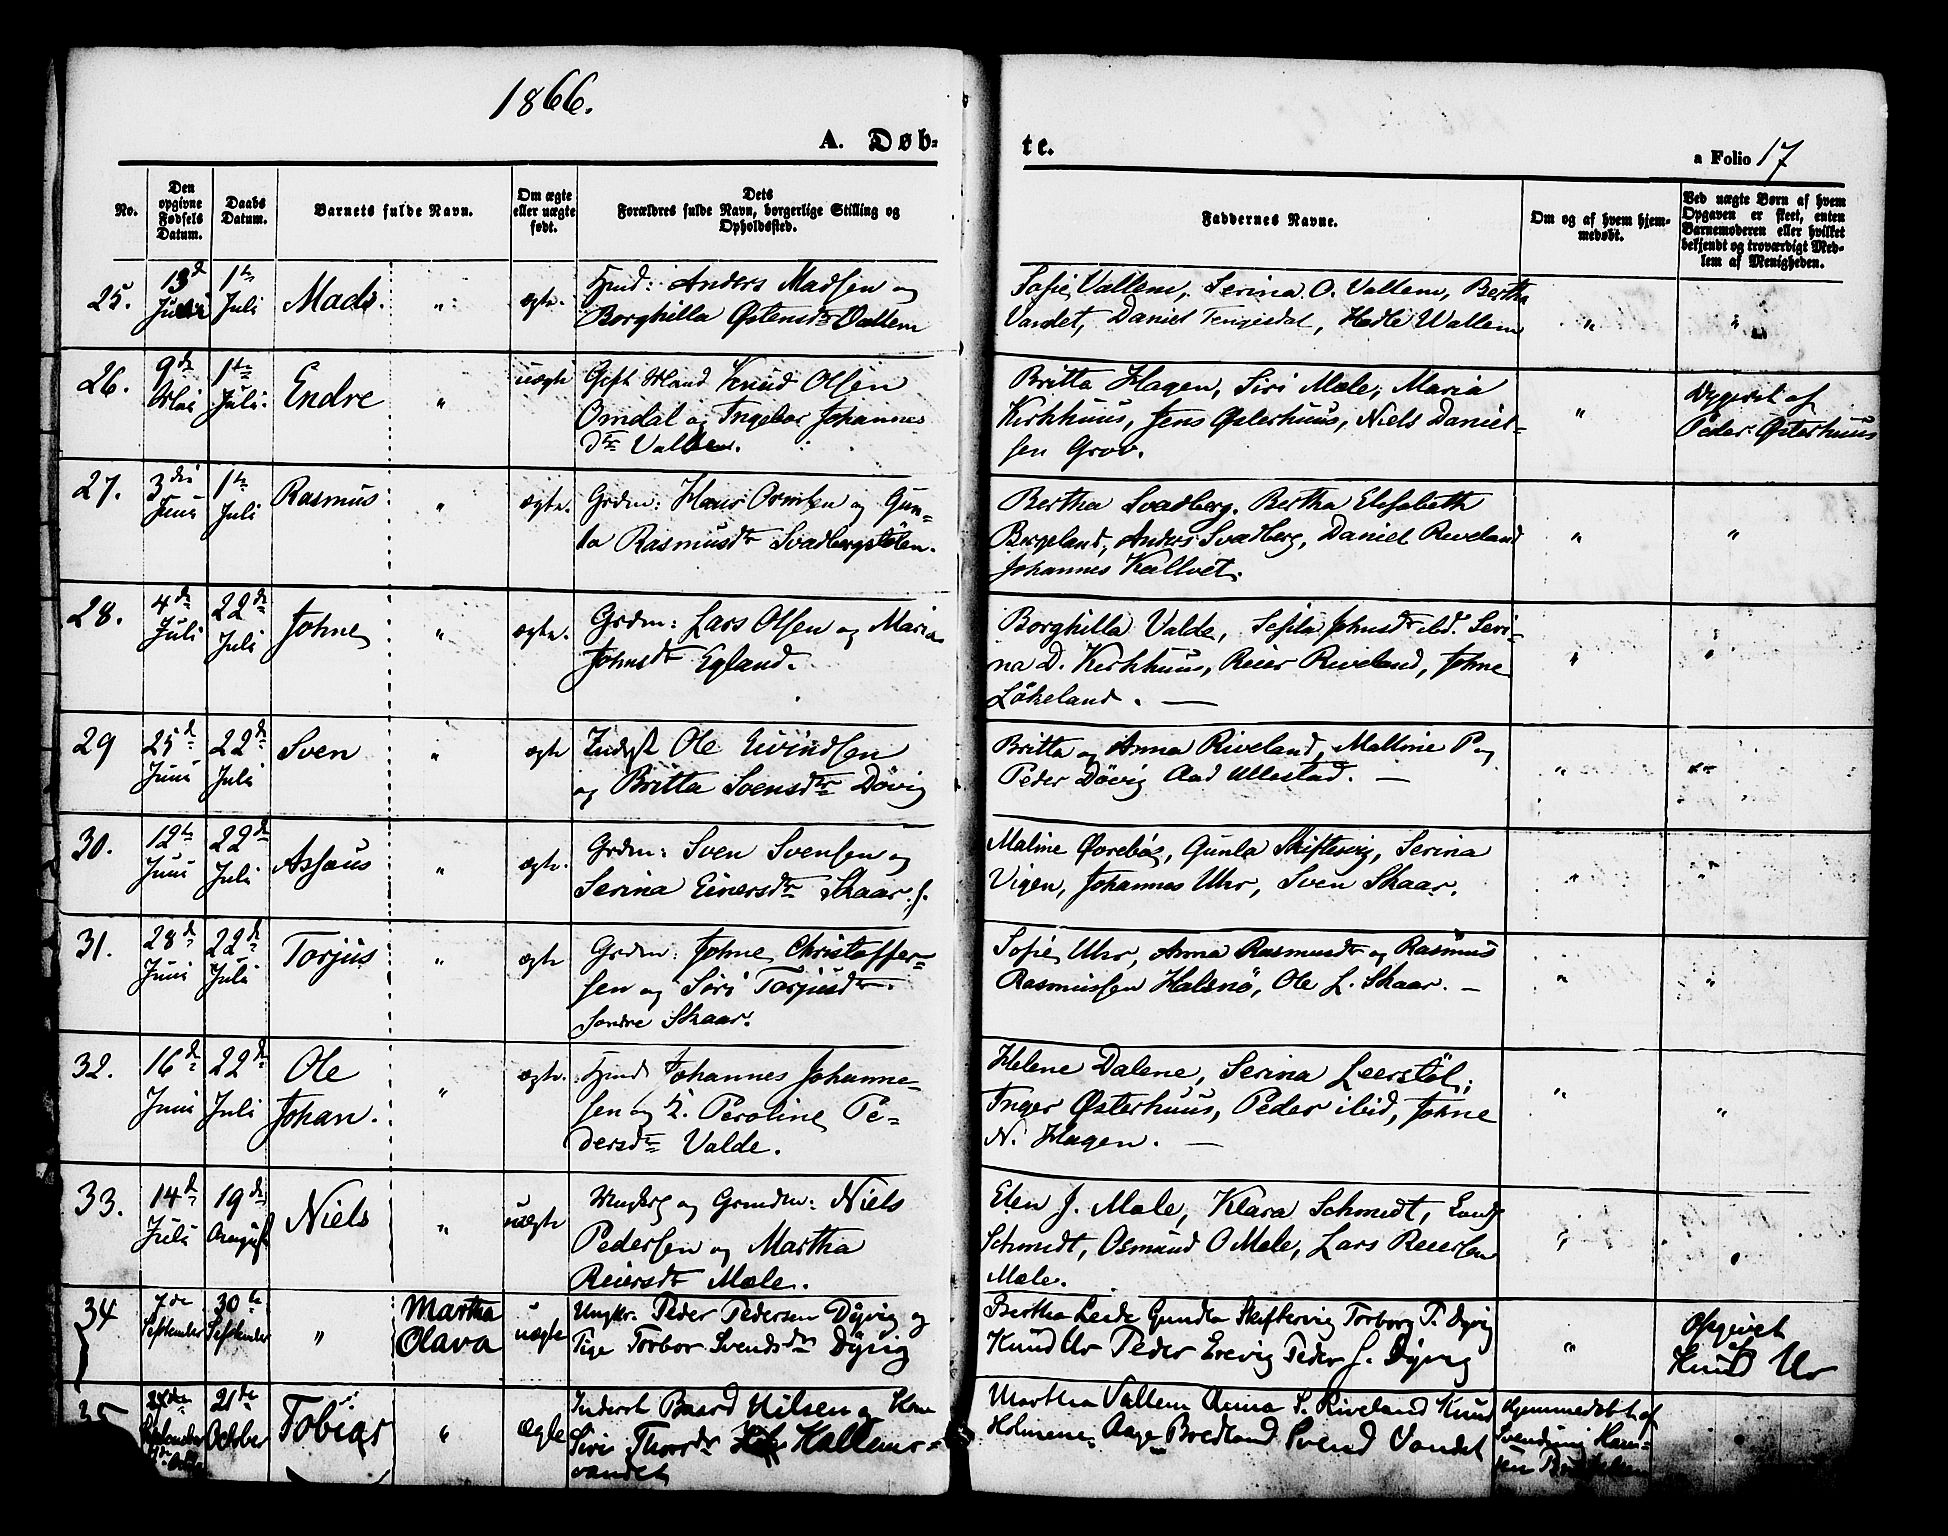 1866.
A. Døb=
te.
a Folio 17
No.
Den
opgivne
Fødsels
Datum.
Daabs
Datum.
Barnets fulde Navn.
Om ægte
eller uægte
født.
Dets
Forældres fulde Navn, borgerlige Stilling og
Opholdssted.
Faddernes Navne.
Om og af hvem hjem=
medøbt.
Ved uægte Børn af hvem
Opgaven er skeet, enten
Barnemoderen eller hvilket
bekjendt og troværdigt Med=
lem af Menigheden.
25. 13d 1te Mads. " ægte.
Juli
Hmd: Anders Madsen og
Borghilla Østensdtr Vallem
Sofie Vallem, Serina O. Vallem, Bertha
Vandet, Daniel Tengesdal, Hedle Wallem " "
26. 9de 1te Endre " uægte
Mai Juli.
Gift Mand Knud Olsen
Omdal og Ingebor Johannes
dtr Valde.
Britta Hagen, Siri Mæle, Maria
Kirkhuus, Jens Østerhuus, Niels Daniel=
sen Grov. "
Opgivet af
Peder Østerhuus
27. 3die 1te Rasmus " ægte.
Juni Juli
Grdm: Hans Ormsen og Gun=
la Rasmusdtr Svadbergstølen.
Bertha Svadberg. Bertha Elisabeth
Bergeland, Anders Svadberg, Daniel Riveland
Johannes Kallvet. " "
28. 4de 22de Johne " ægte.
Juli Juli
Grdm: Lars Olsen og Maria
Johnsdtr Egland.
Borghilla Valde, Sesila Johnsdtr ibd. Seri=
na D. Kirkhuus, Reier Riveland, Johne
Løkeland. — " "
29 25d 22d Sven " ægte
Juni Juli
Indst Ole Eivindsen
og Britta Svensdtr Døvig
Britta og Anna Riveland, Malline P og
Peder Døvig Aad Ullestad. — " "
30. 12te 22de Assaus " ægte.
Juni Juli
Grdm: Sven Svensen og
Serina Einersdtr Skaar.
Maline Øvrebøs, Gunla Skiftesvig, Serina
Vigen, Johannes Uhr, Sven Skaar. " "
31. 28d 22d Torjus " ægte
Juni Juli
Grdm: Johne Christoffer=
sen og Siri Torjusdtr.
søndre Skaar.
Sofie Uhr, Anna Rasmusdtr og Rasmus
Rasmussen Halsnø, Ole L. Skaar. — " "
32. 16d 22d Ole " ægte.
Juni Juli Johan.
Hmd Johannes Johanne=
sen og h. Peroline Pe=
dersdtr Valde.
Helene Dalene, Serina Leerstøl,
Inger Østerhuus, Peder ibid, Johne
N. Hagen. — " "
33. 14d 19de Niels " uægte
Juli August
Ungkrl og Grmdm: Niels
Pedersen og Martha
Reiersdtr Mæle.
Elen J. Mæle, Klara Schmidt,
Schmidt, Osmund O Mæle, Lars Reiersen
Mæle. " "
34 7de 30te " Martha uægte
September September Olava
Ungkr. Peder Pedersen Dyvig og
Pige Torbor Svendsdtr Dyvig
Bertha Leide Gundla Skiftesvig Torborg P. Dyvig
Knud Ur Peder Erevig Peder J. Dyvig "
Opgivet
Knud Ur
35 27de 21de Tobias " ægte
September October
Inderst Baard Nilsen og Kone
Siri Thorsdtr Hallems=
vandet
Martha Vallem Anna S. Riveland Knud
Holmene Aage Bredland Svend Vandet
Hjemmedøbt af
Svendung Han=
sen